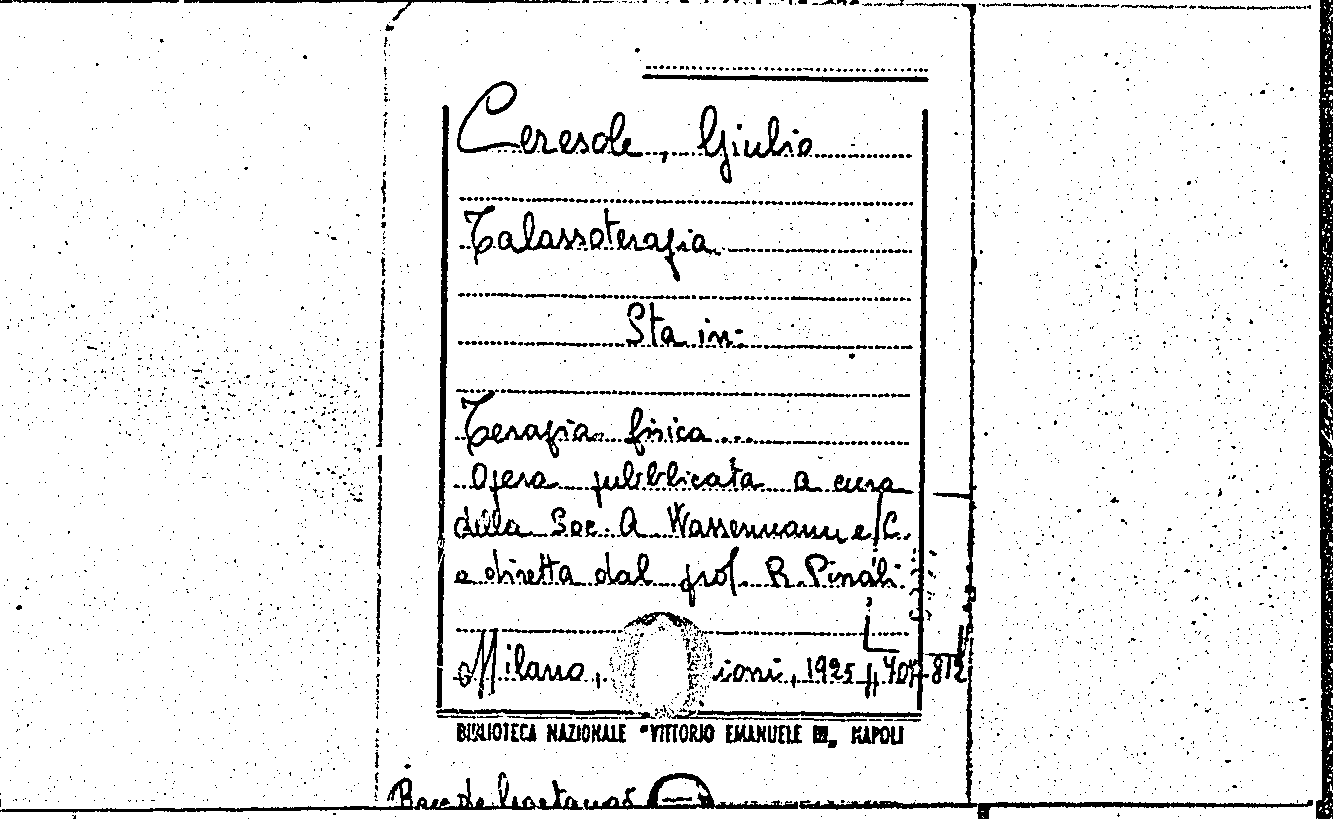 Ceresole, Giulio
Talassoterapia
Sta in:
Terapia fisica...
Opera pubblicata a cura
della Soc. A. Wassermann e C.
e diretta dal prof. R. Pinali
Milano, ioni, 1925
BIBLIOTECA NAZIONALE "VITTORIO EMANUELE III" NAPOLI